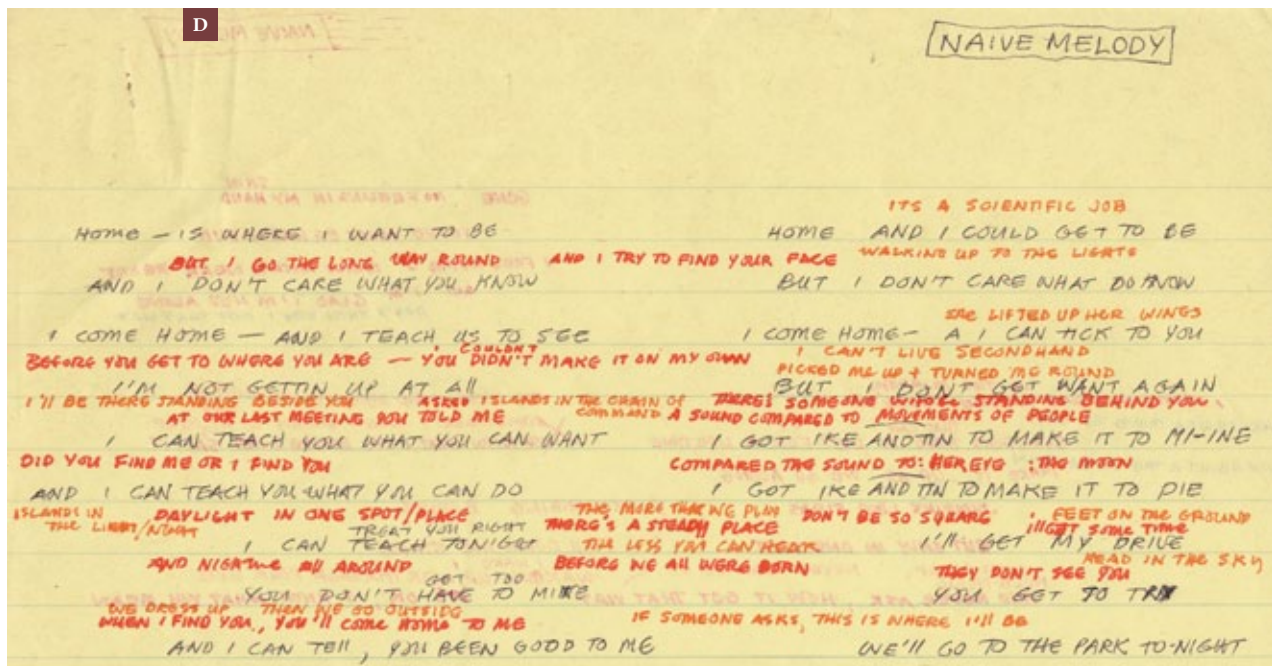 D
NAIVE MELODY
ITS A SCIENTIFIC JOB
HOME — IS WHERE I WANT TO BE
HOME AND I COULD GET TO BE
BUT I GO THE LONG WAY ROUND AND I TRY TO FIND YOUR FACE
WALKING UP TO THE LIGHTS
AND I DON'T CARE WHAT YOU KNOW
BUT I DON'T CARE WHAT DO KNOW
SHE LIFTED UP HER WINGS
I COME HOME — AND I TEACH US TO SEE
I COME HOME — A I CAN TICK TO YOU
I COULDN'T
BEFORE YOU GET TO WHERE YOU ARE — YOU DIDN'T MAKE IT ON MY OWN
I CAN'T LIVE SECONDHAND
PICKED ME UP + TURNED ME ROUND
I'M NOT GETTIN UP AT All
BUT I DON'T GET WANT AGAIN
I'll BE THERE STANDING BESIDE YOU ASKED ISLANDS IN THE CHAIN OF COMMAND
THERE'S SOMEONE STANDING BEHIND YOU
AT OUR LAST MEETING YOU TOLD ME
A SOUND COMPARED TO MOVEMENTS OF PEOPLE
I CAN TEACH YOU WHAT YOU CAN WANT
I GOT IKE AND TIN TO MAKE IT TO MI-INE
DID YOU FIND ME OR I FIND YOU
COMPARED THE SOUND TO: HER EYE : THE MOON
AND I CAN TEACH YOU WHAT YOU CAN DO
I GOT IKE AND TIN TO MAKE IT TO PIE
ISLANDS IN THE LIGHT/NIGHT
DAYLIGHT IN ONE SPOT/PLACE
THE MORE THAT WE PLAN
DON'T BE SO SQUARE
FEET ON THE GROUND
TREAT YOU RIGHT
THERE'S A STEADY PLACE
I'll GET SOME TIME
I CAN TEACH TONIGHT
THE LESS YOU CAN HEAR
I'LL GET MY DRIVE
HEAD IN THE SKY
AND NIGHTIME All AROUND
BEFORE WE All WERE BORN
THEY DON'T SEE YOU
GET TOO
YOU DON'T HAVE TO
YOU GET TO
WE DRESS UP THEN WE GO OUTSIDE
WHEN I FIND YOU, YOU'll COME HOME TO ME
IF SOMEONE ASKS, THIS IS WHERE I'll BE
AND I CAN TEll, YOU BEEN GOOD TO ME
WE'll GO TO THE PARK TO-NIGHT